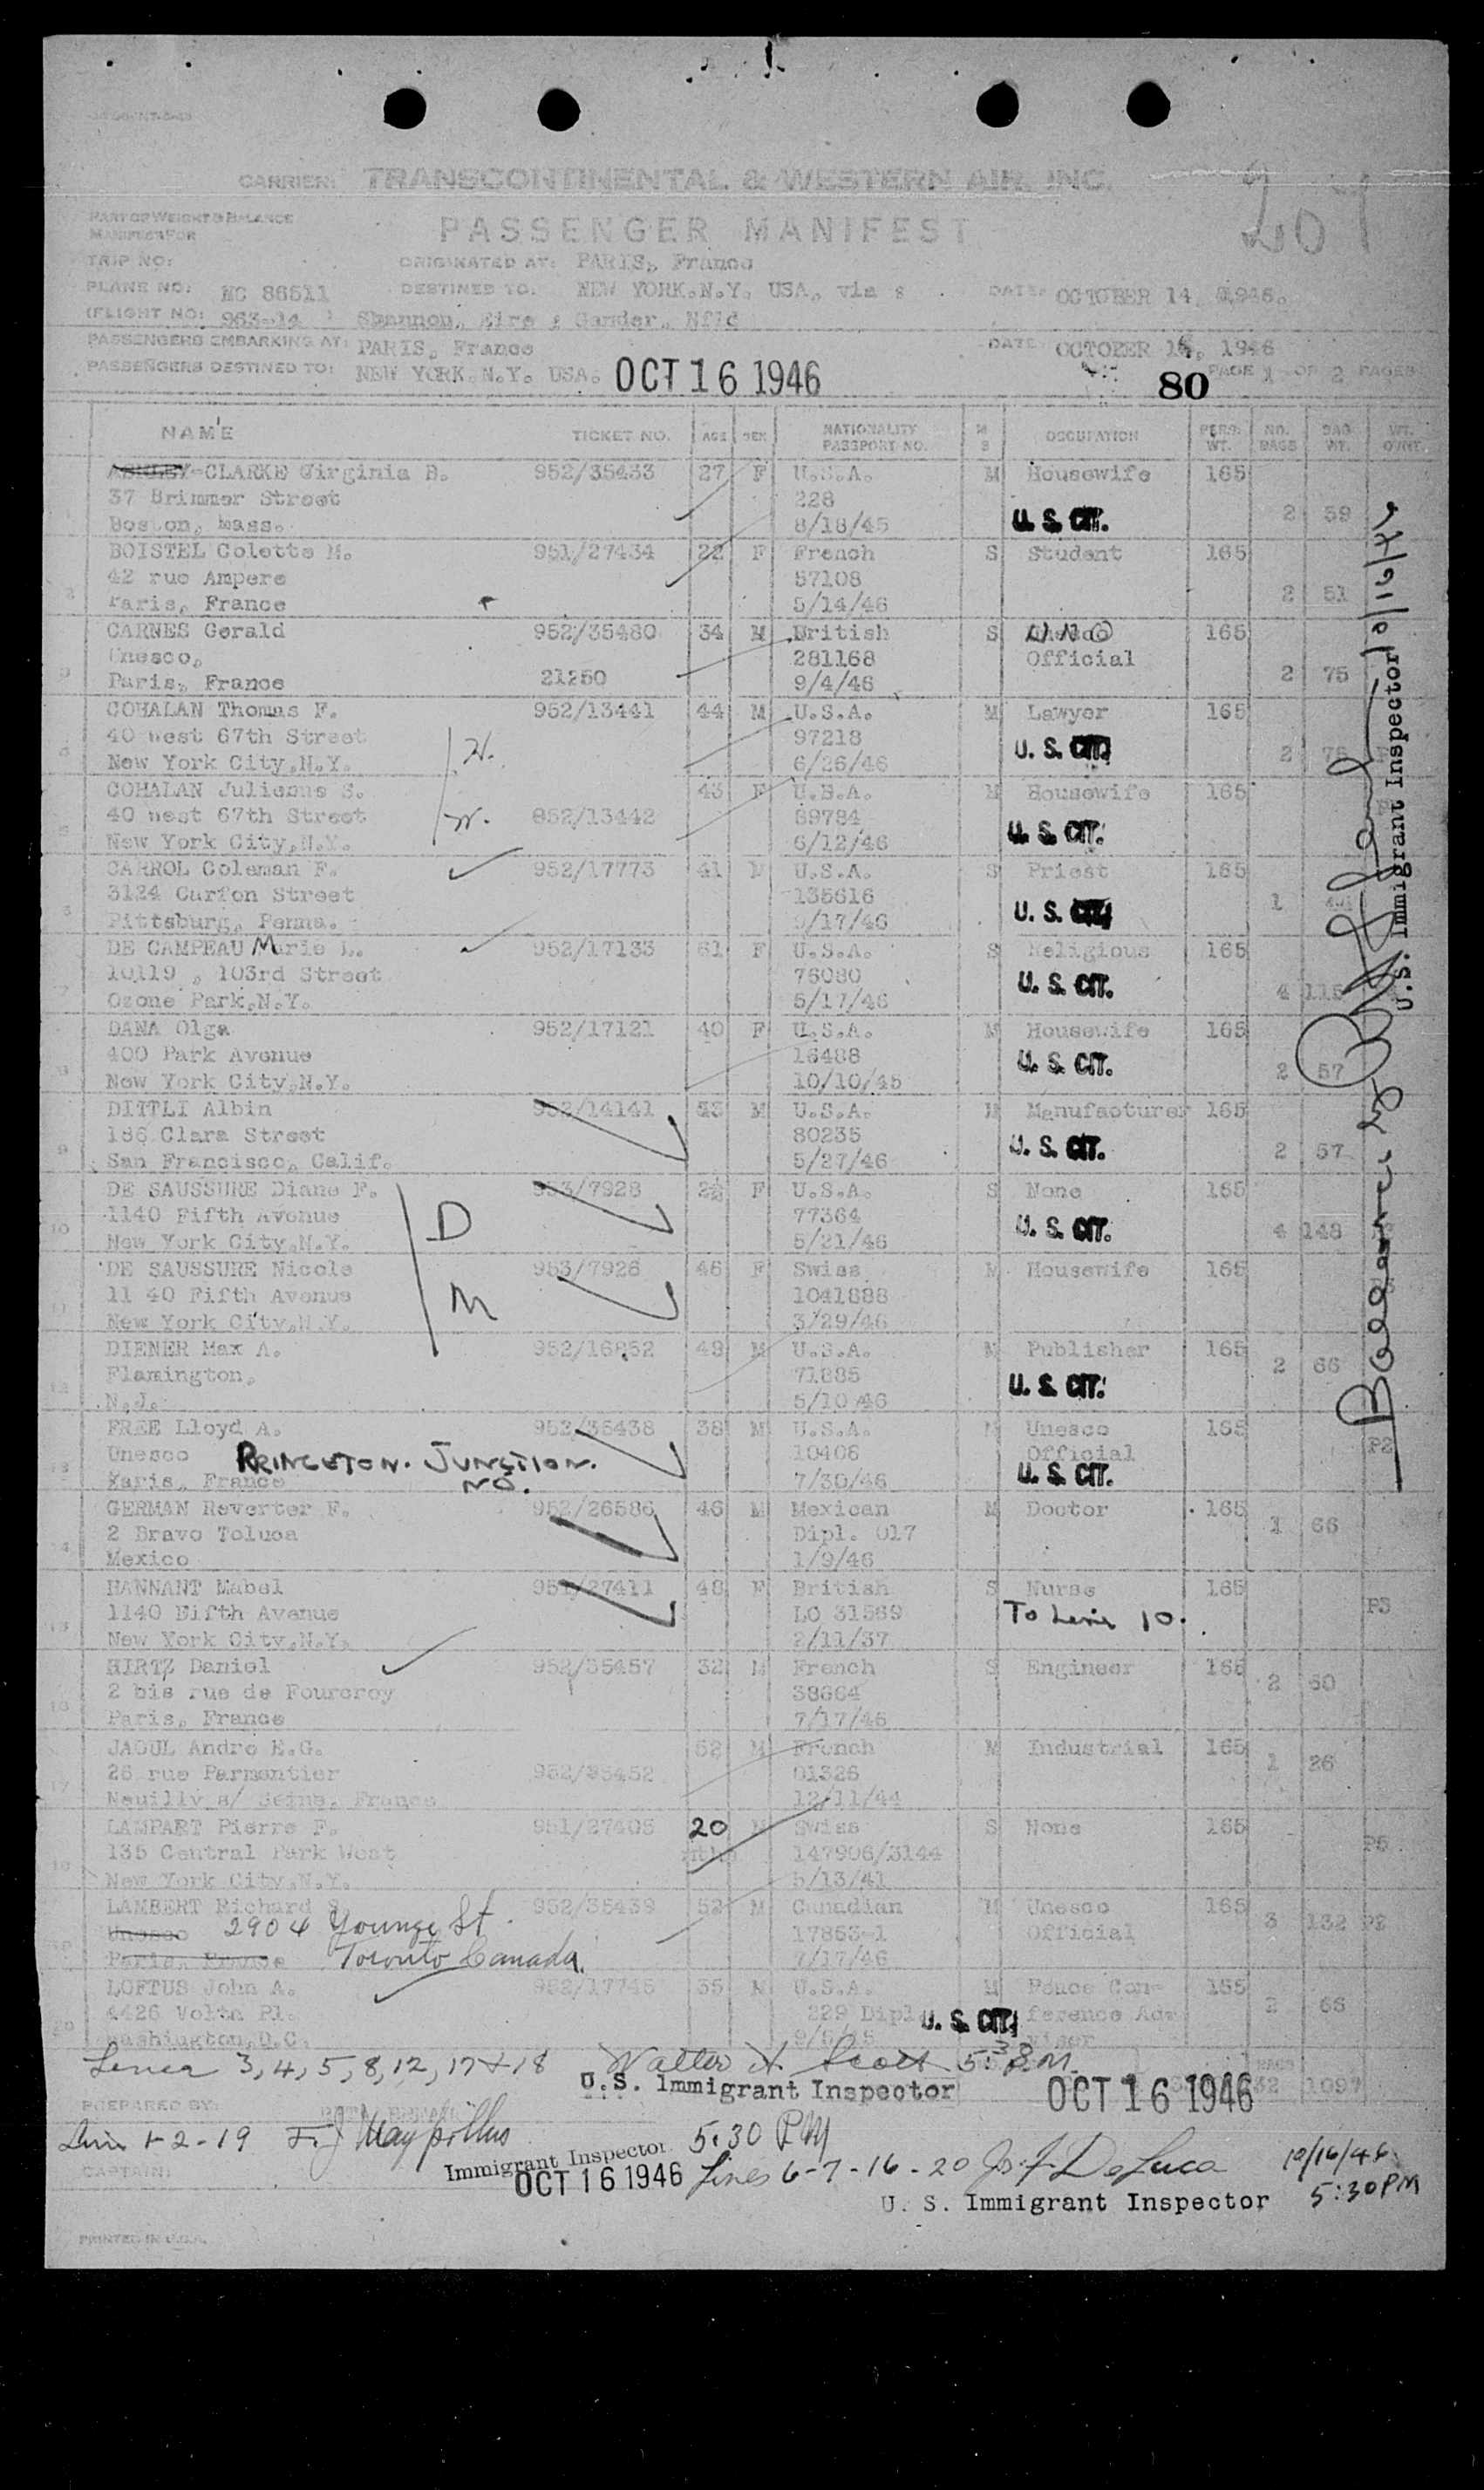 CARRIER: TRANSCONTINENTAL & WESTERN AIR, INC.
207
PART OF WEIGHT & BALANCE
MANIFEST FOR
PASSENGER MANIFEST
TRIP NO: ORIGINATED AT: PARIS, France
PLANE NO: NC 86511 DESTINED TO: NEW YORK.N.Y. USA, via : DATE: OCTOBER 14, 1946.
(FLIGHT NO: 963-14 ) Shannon, Eire & Gander, Nfld
PASSENGERS EMBARKING AT: PARIS, France DATE: OCTOBER 1, 1946
PASSENGERS DESTINED TO: NEW YORK.N.Y. USA. OCT 16 1946 80 PAGE 1 OF 2 PAGES
NAME TICKET NO. AGE SEX NATIONALITY PASSPORT NO. M S OCCUPATION PERS. WT. NO. BAGS BAG WT. WT. O/RT.
CLARKE Virginia B. 952/35433 27 F U.S.A. M Housewife 165
37 Brimmer Street 228
Boston, Mass. 8/18/45 U.S. CIT. 2 59
BOISTEL Colette M. 951/27434 22 F French S Student 165
42 rue Ampere 57108
2 Paris, France 5/14/46 2 51
CARNES Gerald 952/35480 34 M British S UNO 165
Unesco, 281168 Official
3 Paris, France 21250 9/4/46 2 75
COHALAN Thomas F. 952/13441 44 M U.S.A. M Lawyer 165
40 West 67th Street H. 97218 U.S. CIT.
New York City,N.Y. 6/26/46 2
COHALAN Julienne S. 43 F U.S.A. M Housewife 165
40 West 67th Street W. 852/13442 89784
5 New York City,N.Y. 6/12/46 U.S. CIT.
CARROL Coleman F. 952/17773 41 M U.S.A. S Priest 165
3124 Carfon Street 135616
Pittsburg, Penna. 9/17/46 U.S. CIT. 1
DE CAMPEAU Marie L. 952/17133 61 F U.S.A. S Religious 165
10119 , 103rd Street 76080 U.S. CIT.
7 Ozone Park,N.Y. 5/17/46 4 115
DANA Olga 952/17121 40 F U.S.A. M Housewife 165
400 Park Avenue 16488 U.S. CIT.
8 New York City,N.Y. 10/10/45 2 57
DITTLI Albin 952/14141 M U.S.A. M Manufacturer 165
186 Clara Street 80235 U.S. CIT.
9 San Francisco, Calif. 5/27/46 2 57
DE SAUSSURE Diane F. 953/7928 2½ F U.S.A. S None 165
1140 Fifth Avenue D 77364 U.S. CIT.
10 New York City,N.Y. 5/21/46 4 148
DE SAUSSURE Nicole 953/7926 46 F Swiss M Housewife 165
11 40 Fifth Avenue M 1041888
11 New York City,N.Y. 3/29/46
DIENER Max A. 952/16852 49 M U.S.A. M Publisher 165
Flamington, 71885 2 66
12 N.J. 5/10/46 U.S. CIT.
FREE Lloyd A. 952/35438 38 M U.S.A. M Unesco 165
Unesco PRINCETON. JUNCTION. 10406 Official P2
13 Paris, France 7/30/46 U.S. CIT.
GERMAN Reverter F. 952/26586 46 M Mexican M Doctor 165
2 Bravo Toluca Dipl. 017 1 66
14 Mexico 1/9/46
HANNANT Mabel 951/27411 48 F British S Nurse 165
1140 Fifth Avenue LO 31569 To Line 10. P3
New York City,N.Y. 2/11/37
HIRTZ Daniel 952/35457 32 M French S Engineer 165
2 bis rue de Fourcroy 38664 2 60
16 Paris, France 7/17/46
JAOUL Andre E.G. 52 M French M Industrial 165
26 rue Parmentier 952/35452 01326 1 26
17 Neuilly s/ Seine, France 12/11/44
LAMPART Pierre F. 951/27405 20 M Swiss S None 165
135 Central Park West 147906/3144 P5
New York City,N.Y. 5/13/41
LAMBERT Richard S. 952/35439 52 M Canadian M Unesco 165
Unesco 2904 Younge St. 17853-1 Official 3 132 P2
Paris, France Toronto Canada. 7/17/46
LOFTUS John A. 952/17745 35 M U.S.A. M Peace Con- 165
4426 Volta Pl. 229 Dipl. U.S. CIT. ference Ad- 2 66
20 Washington,D.C. viser
Lines 3,4,5,8,12,17+18 Walter A. Scott 5:30 PM
U.S. Immigrant Inspector OCT 16 1946 1097
PREPARED BY:
Line 1-2-19 5:30 PM
Immigrant Inspector
CAPTAIN: OCT 16 1946 Lines 6-7-16-20 Jos. F. DeLuca 10/16/46
U. S. Immigrant Inspector 5:30 PM
PRINTED IN U.S.A.
Balance
U.S. Immigrant Inspector 10/16/46